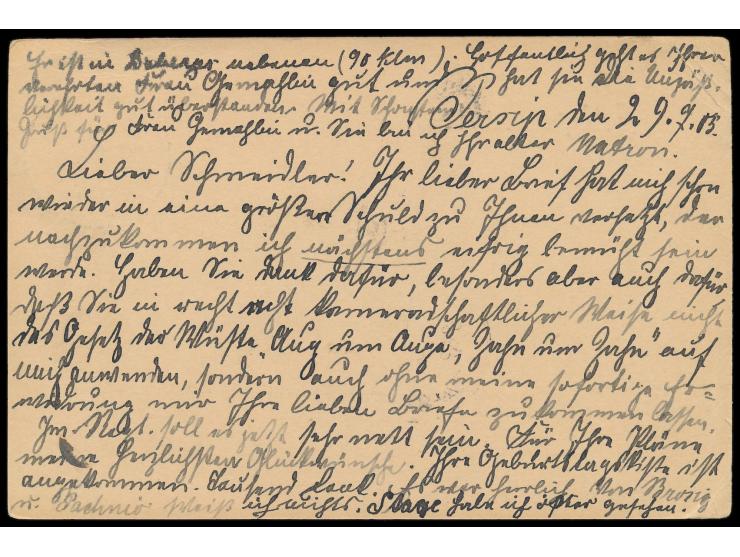 Er ist in nebenan (90 klm). Hoffentlich geht es Ihrer
verehrten Frau Gemahlin gut und hat sie die Unpäß-
lichkeit gut überstanden. Mit
Gruß für Frau Gemahlin u. Sie bin ich Ihr alter
Persip den 29.9.05.
Lieber Schmeidler! Ihr lieber Brief hat mich schon
wieder in eine größere Schuld zu Ihnen versetzt, der
nachzukommen ich nächstens eifrig bemüht sein
werde. Haben Sie dank dafür, besonders aber auch dafür
daß Sie in recht echt kameradschaftlicher Weise nicht
das Gesetz der Wüste „Aug um Auge, Zahn um Zahn" auf
mich anwenden, sondern auch ohne meine sofortige Er=
widerung mir Ihre lieben Briefe zukommen lassen.
Im Regt. soll es jetzt sehr nett sein. Für Ihre Pläne
meine herzlichsten Glückwünsche. Ihre Geburtstagskiste ist
angekommen. Tausend Dank. Es war herrlich. Von Brosig
u. weiß ich nichts. Stage habe ich öfter gesehen.